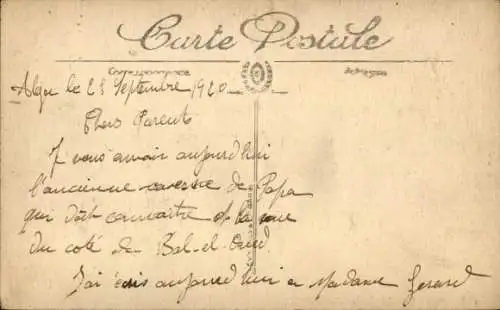 Carte Postale
Correspondance Adresse
Alger le 28 Septembre 1920
Chers Parents
J vous envoie aujourd'hui
l'ancienne caserne de Papa
qui doit connaître et la vue
du coté de Bab-el-Oued.
J'ai écris aujourd'hui a Madame Gerard